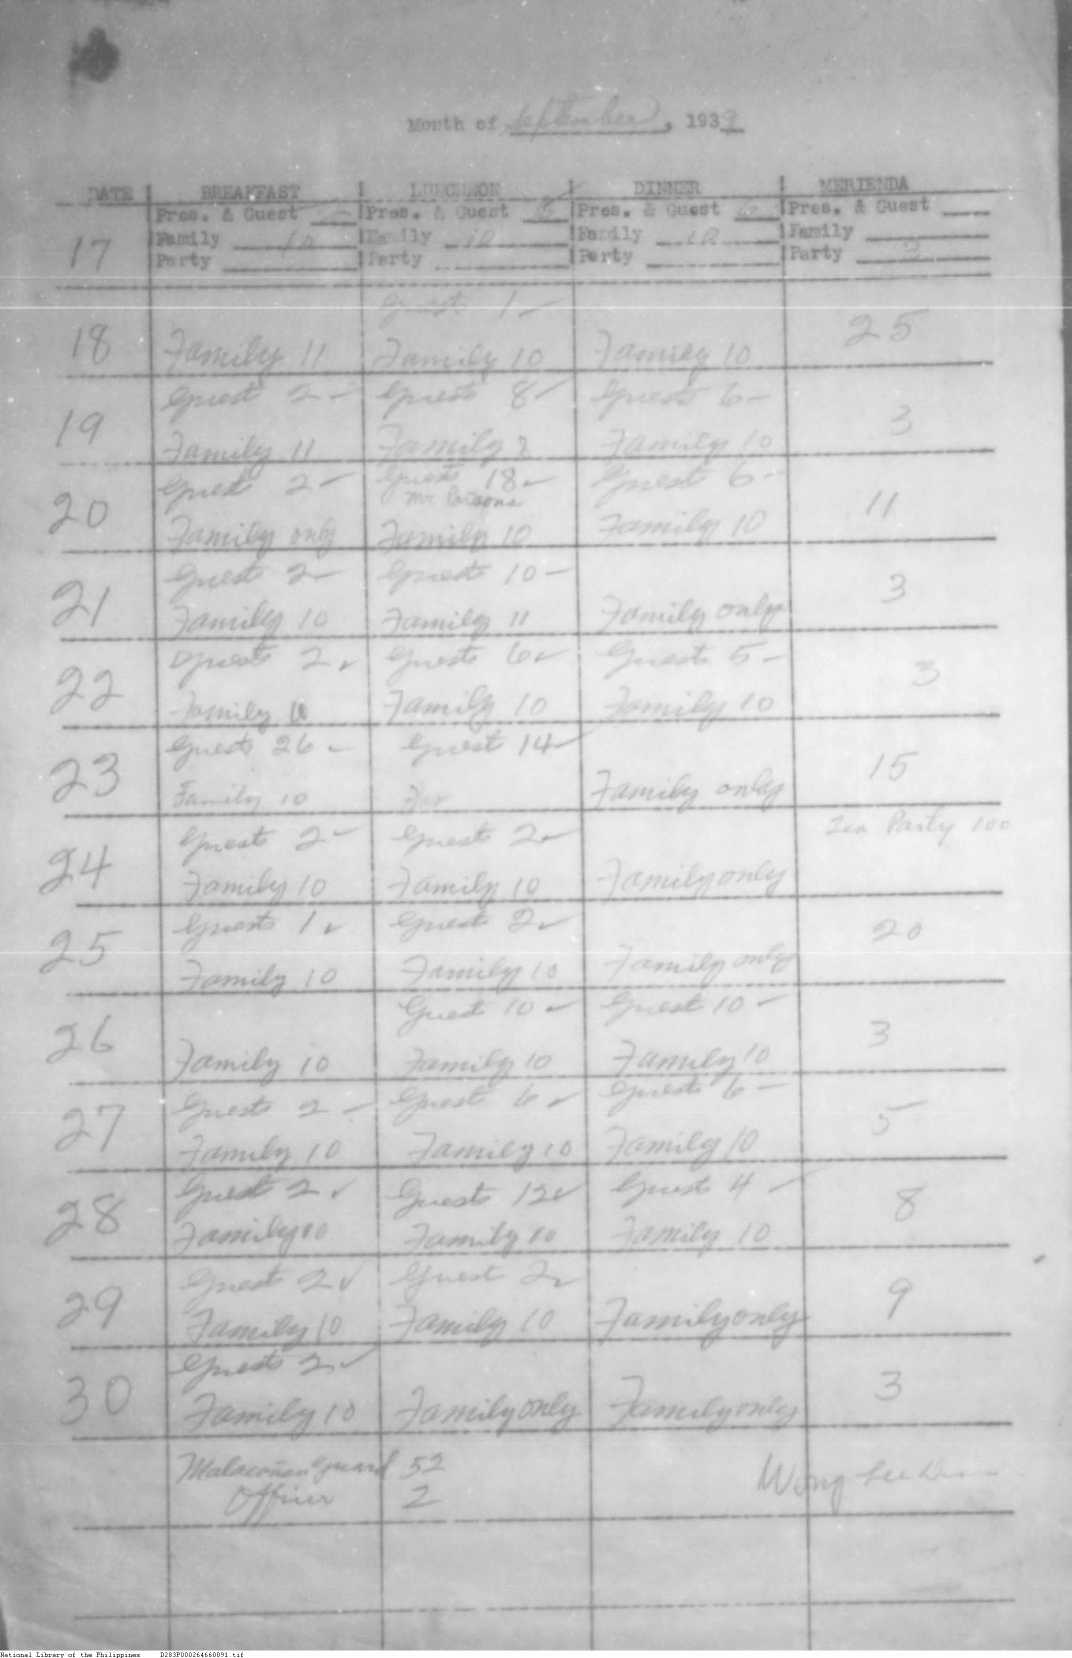 Month of September, 1939
DATE | BREAFFAST | LUNCHEON | DINNER | MERIENDA
Pres. & Guest | Pres. & Guest 6 | Pres. & Guest 6 | Pres. & Guest
17 Family 10 | Family 10 | Family 10 | Family
Party | Party | Party | Party 3
Guest 1
18 Family 11 Family 10 Family 10 25
Guest 2 Guests 8 Guests 6
19 Family 11 Family Family 10 3
Guest 2 Guests 18 Guests 6
Mr.
20 Family only Family 10 Family 10 11
Guest 2 Guests 10
21 Family 10 Family 11 Family only 3
Guests 2 Guests 6 Guests 5
22 Family 10 Family 10 Family 10 3
Guests 26 Guest 14
23 Family 10 Family only 15
Guest 2 Guest 2 Tea Party 100
24 Family 10 Family 10 Family only
Guests 1 Guest 2
25 Family 10 Family 10 Family only 20
Guest 10 Guest 10
26 Family 10 Family 10 Family 10 3
Guests 2 Guests 6 Guests 6
27 Family 10 Family 10 Family 10 5
Guest 2 Guests 12 Guest 4
28 Family 10 Family 10 Family 10 8
Guest 2 Guest 2
29 Family 10 Family 10 Family only 9
Guest 2
30 Family 10 Family only Family only 3
Malacañan Guard 52
Officer 2
Wong Lee
National Library of the Philippines D283P000264660091.tif